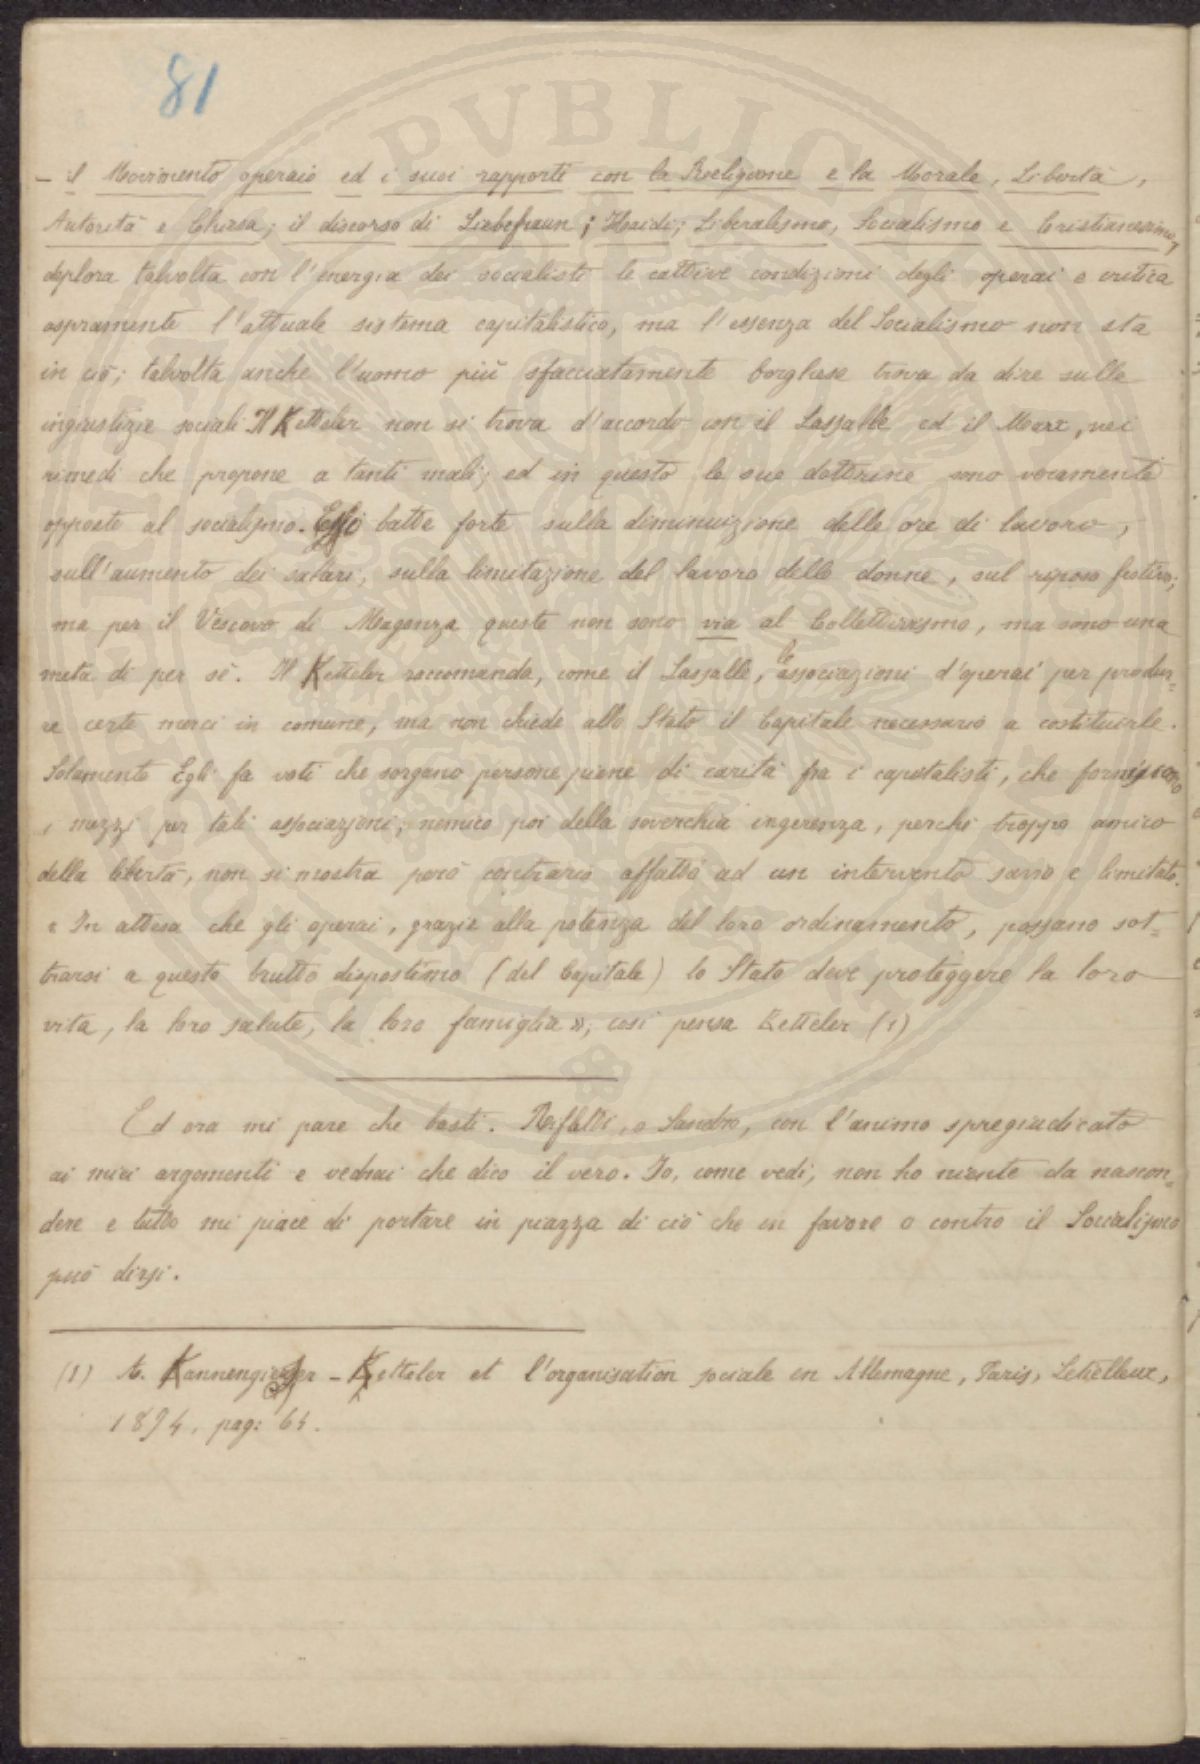 81
- il Movimento operaio ed i suoi rapporti con la Religione e la Morale, Libertà,
Autorità e Chiesa; il discorso di Liebefraun; Liberalismo, Socialismo e Cristianesimo,
deplora talvolta con l'energia dei socialisti le cattive condizioni degli operai e critica
aspramente l'attuale sistema capitalistico, ma l'essenza del Socialismo non sta
in ciò; talvolta anche l'uomo più sfacciatamente borghese trova da dire sulle
ingiustizie sociali. Il Ketteler non si trova d'accordo con il Lassalle ed il Marx, nei
rimedi che propone a tanti mali; ed in questo le sue dottrine sono veramente
opposte al socialismo. Egli batte forte sulla diminuizione delle ore di lavoro,
sull'aumento dei salari, sulla limitazione del lavoro delle donne, sul riposo festivo;
ma per il Vescovo di Magonza queste non sono via al Collettivismo, ma sono una
meta di per sè. Il Ketteler raccomanda, come il Lassalle, le associazioni d'operai per produr-
re certe merci in comune, ma non chiede allo Stato il Capitale necessario a costituirle.
Solamente Egli fa voti che sorgano persone piene di carità fra i capitalisti, che forniscano
i mezzi per tali associazioni; nemico poi della soverchia ingerenza, perchè troppo amico
della libertà, non si mostra però contrario affatto ad un intervento savio e limitato.
« In attesa che gli operai, grazie alla potenza del loro ordinamento, possano sot-
trarsi a questo brutto dispostimo (del Capitale) lo Stato deve proteggere la loro
vita, la loro salute, la loro famiglia »; così pensa Ketteler (1)
Ed ora mi pare che basti. Rifletti, o Sandro, con l'animo spregiudicato
ai miei argomenti e vedrai che dico il vero. Io, come vedi, non ho niente da nascon-
dere e tutto mi piace di portare in piazza di ciò che in favore o contro il Socialismo
può dirsi.
(1) A. Kannengiesser - Ketteler et l'organisation sociale en Allemagne, Paris, Lethielleux,
1894, pag: 64.
PVBLICA